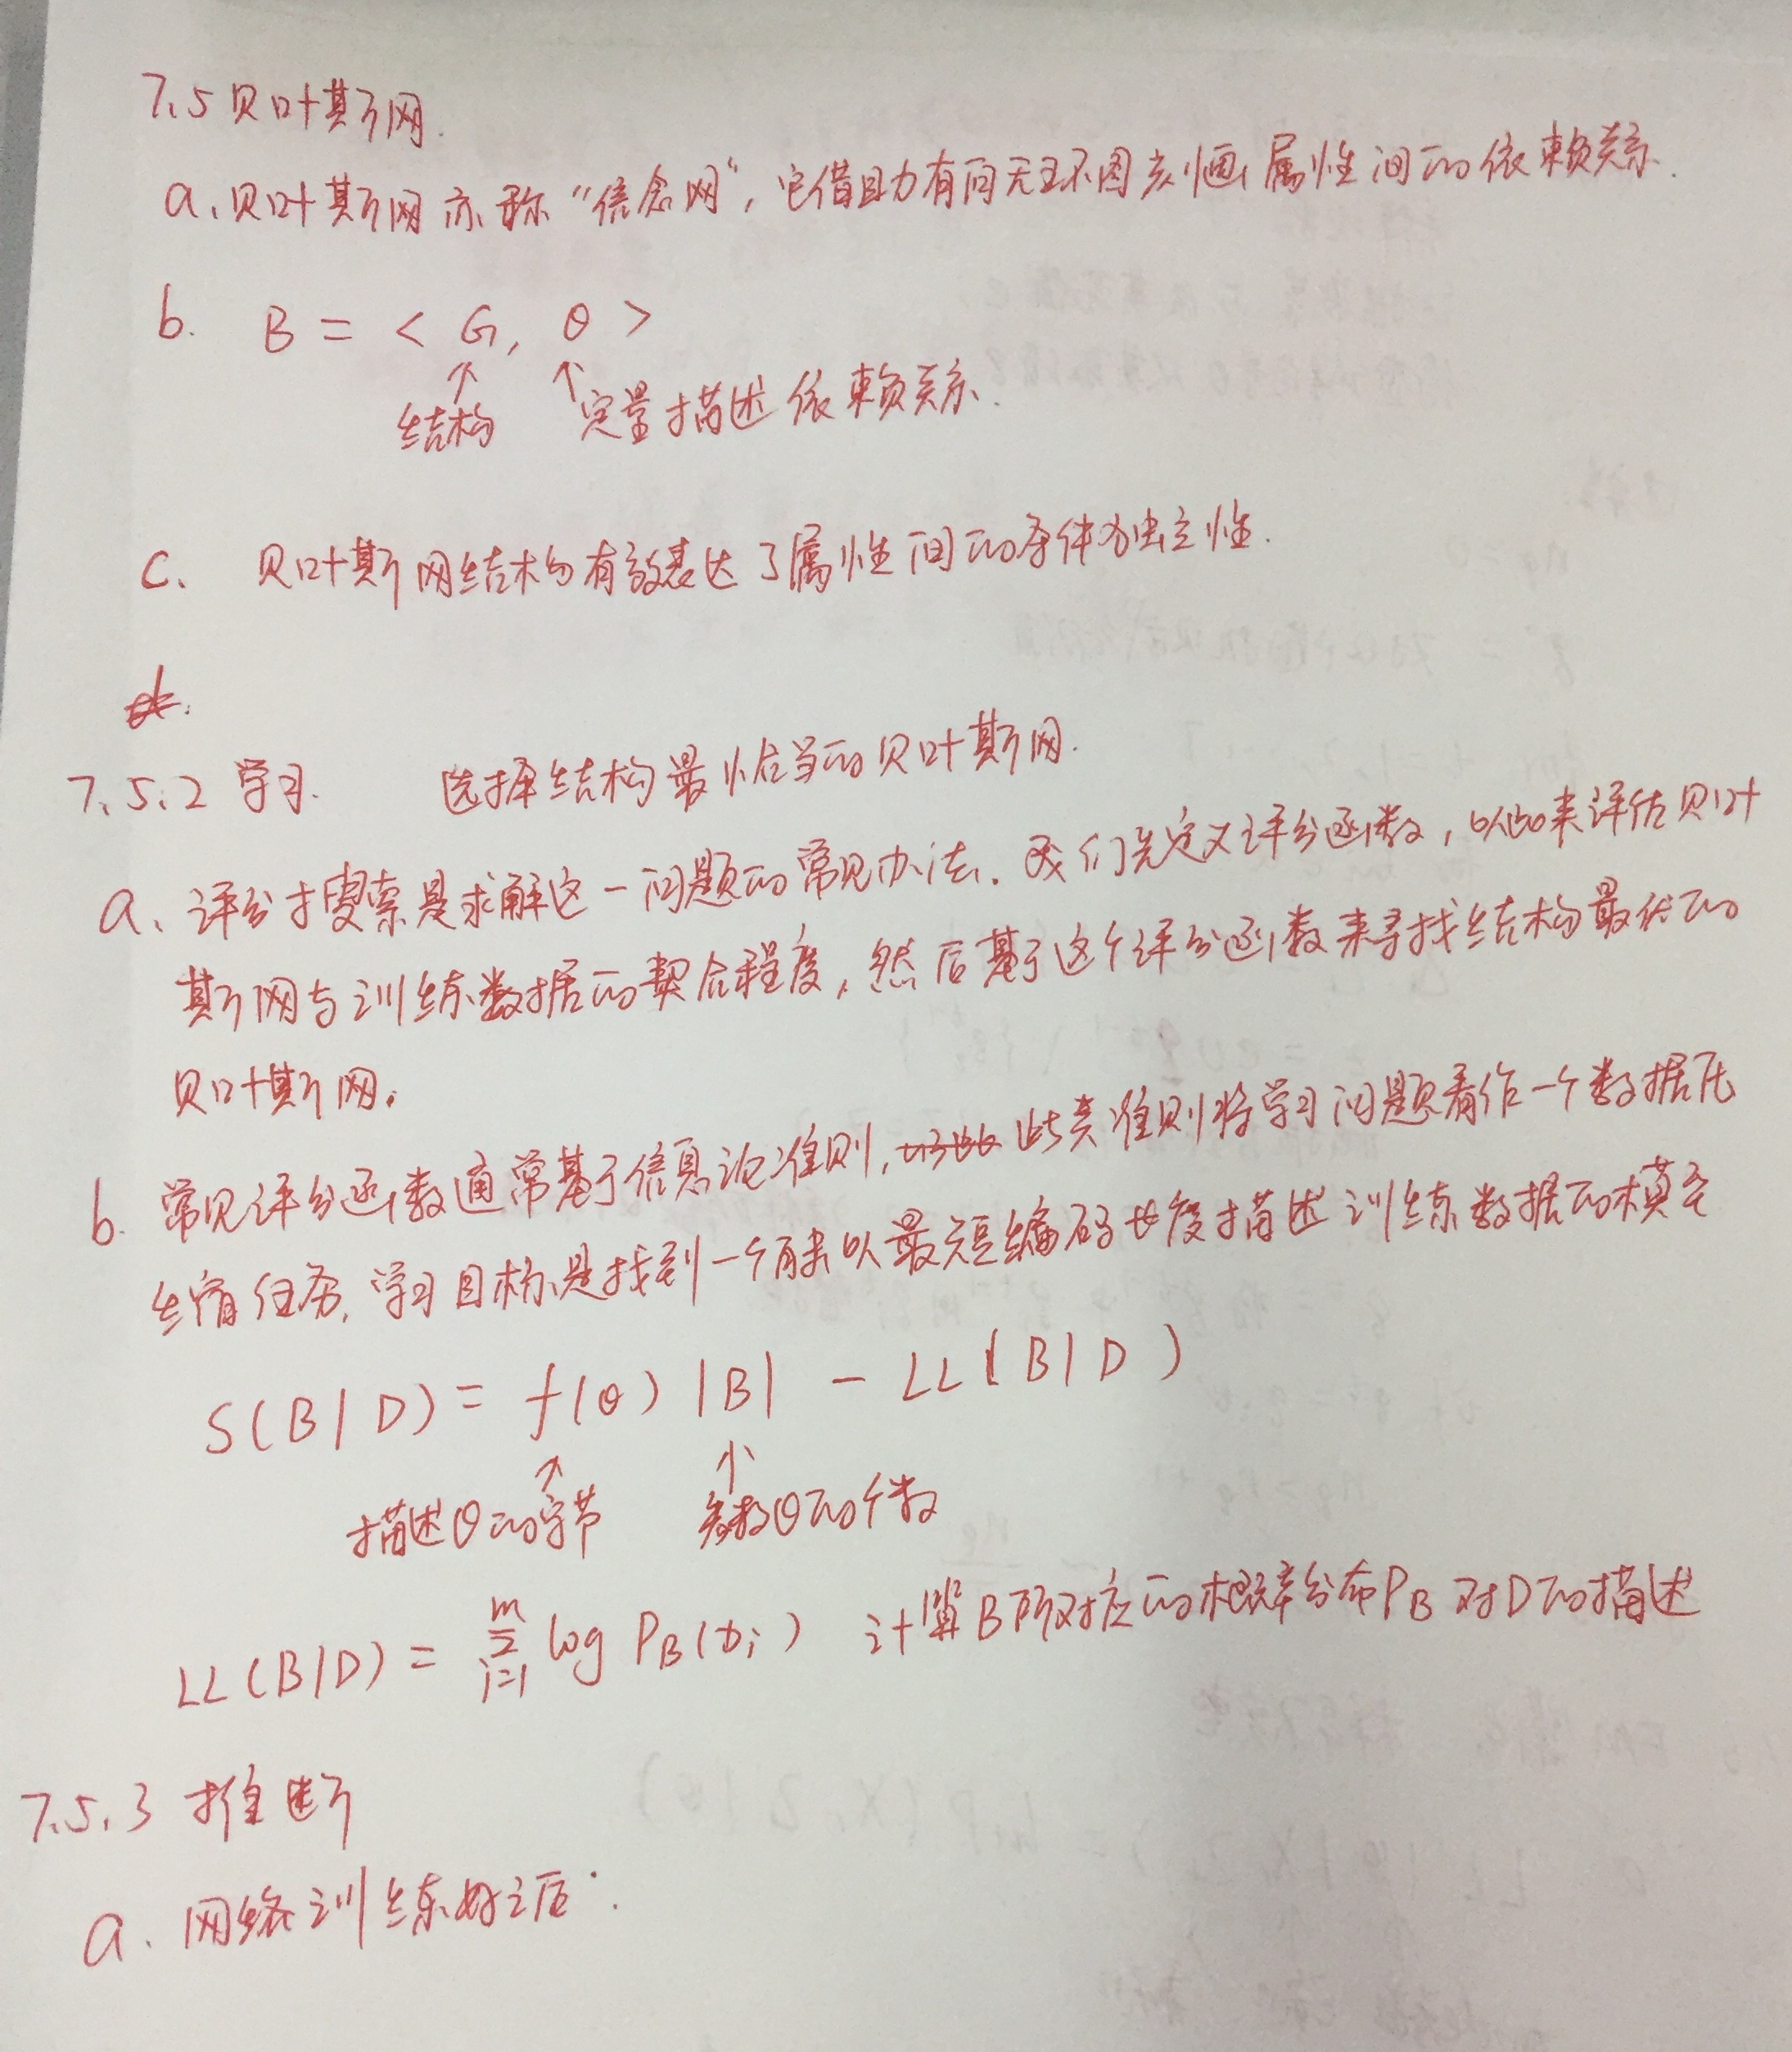 7.5 贝叶斯网.
a. 贝叶斯网亦称“信念网”, 它借助有向无环图刻画属性间的依赖关系.
b. B = < G, θ >
↑ ↑
结构 定量描述依赖关系.
c. 贝叶斯网结构有效表达了属性间的条件独立性.
d.
7.5.2 学习. 选择结构最恰当的贝叶斯网.
a. 评分搜索是求解这一问题的常见办法. 我们先定义评分函数, 以此来评估贝叶
斯网与训练数据的契合程度, 然后基于这个评分函数来寻找结构最优的
贝叶斯网.
b. 常见评分函数通常基于信息论准则, 此类准则将学习问题看作一个数据压
缩任务, 学习目标是找到一个能以最短编码长度描述训练数据的模型
S(B|D) = f(θ)|B| - LL(B|D)
↑ ↑
描述θ的字节 参数θ的个数
LL(B|D) = Σ_{i=1}^{m} log P_B(x_i) 计算B所对应的概率分布P_B对D的描述
7.5.3 推断
a. 网络训练好之后: